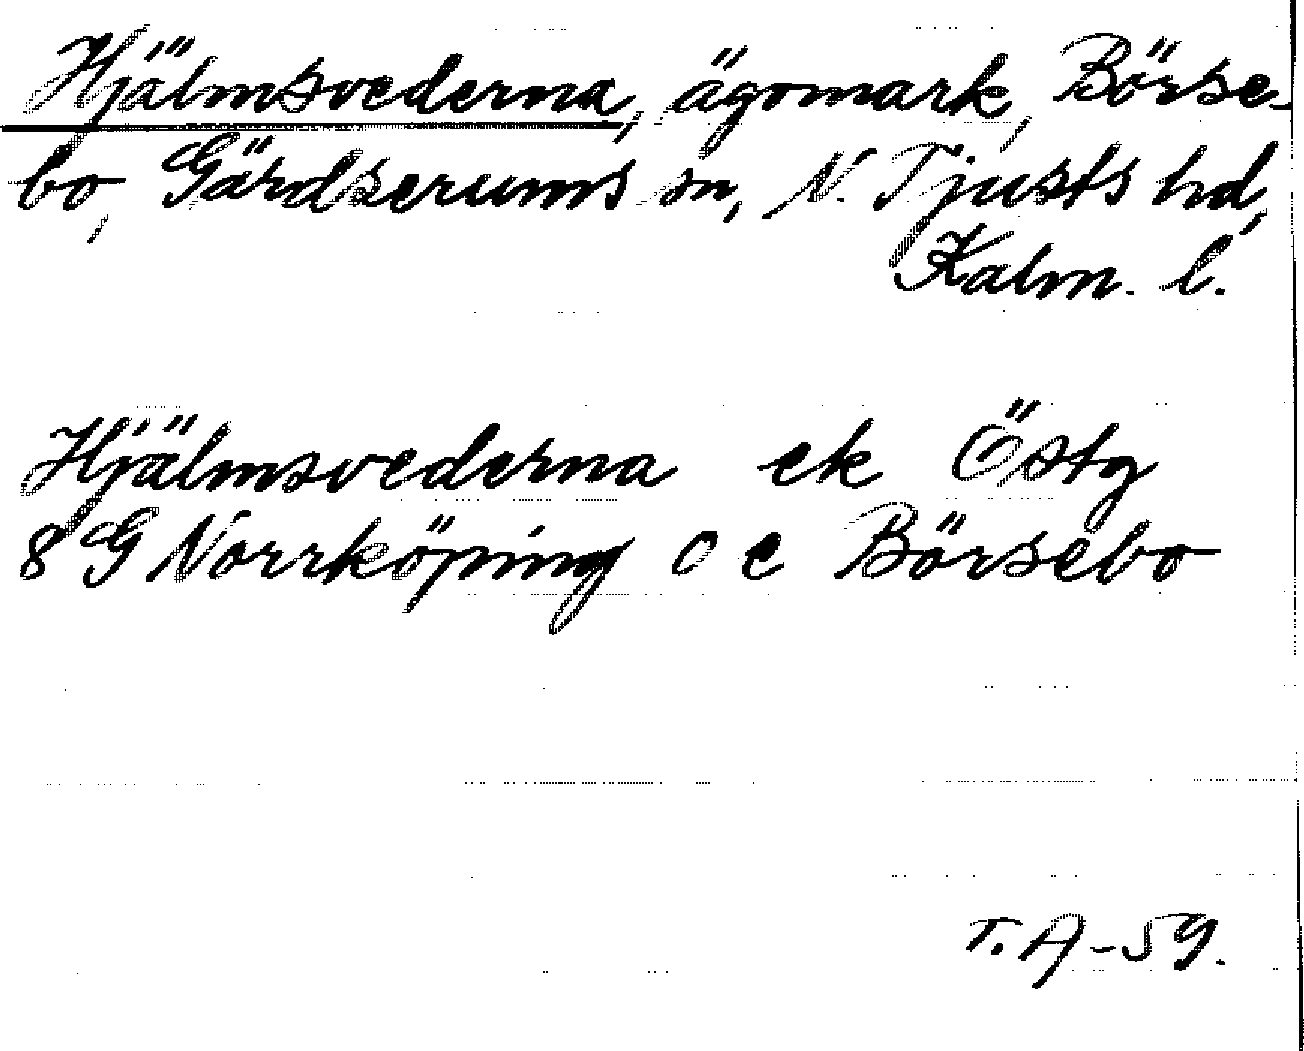 Hjälmsvederna, ägomark, Börse-
bo, Gärdserums sn, N. Tjusts hd,
Kalm. l.
Hjälmsvederna ek Östg
8 G Norrköping O e Börsebo
T. A-59.